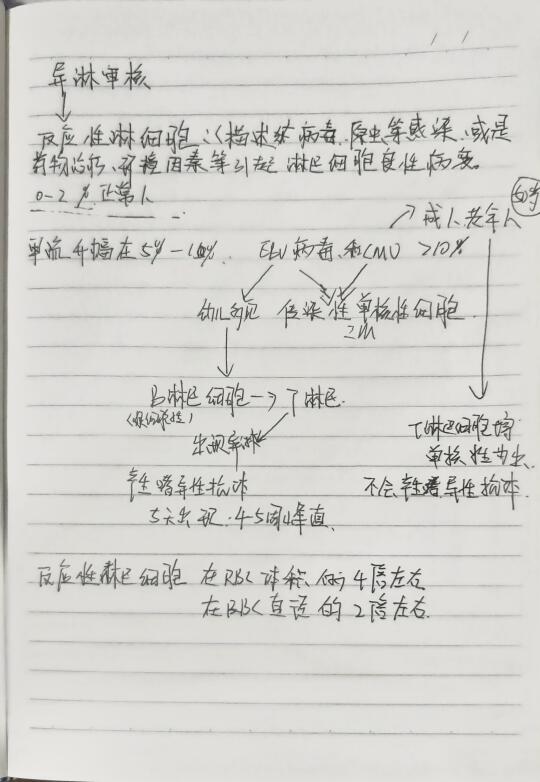 异淋审核
反应性淋细胞 指 病毒、原虫等感染、或是
药物治疗、 因素等引起 淋巴细胞良性病变。
0-2% 正常人
50岁
成人老年人
单 升幅在5%- EBV病毒、和CMV >10%
幼儿 传染性单核性细胞
B淋巴细胞→T淋巴
出现异淋
产生嗜异性抗体
5天出现 4-5周峰值
T淋巴细胞增
单核
不会产生嗜异性抗体
反应性淋巴细胞 在RBC体积的4倍左右
在RBC直径的2倍左右